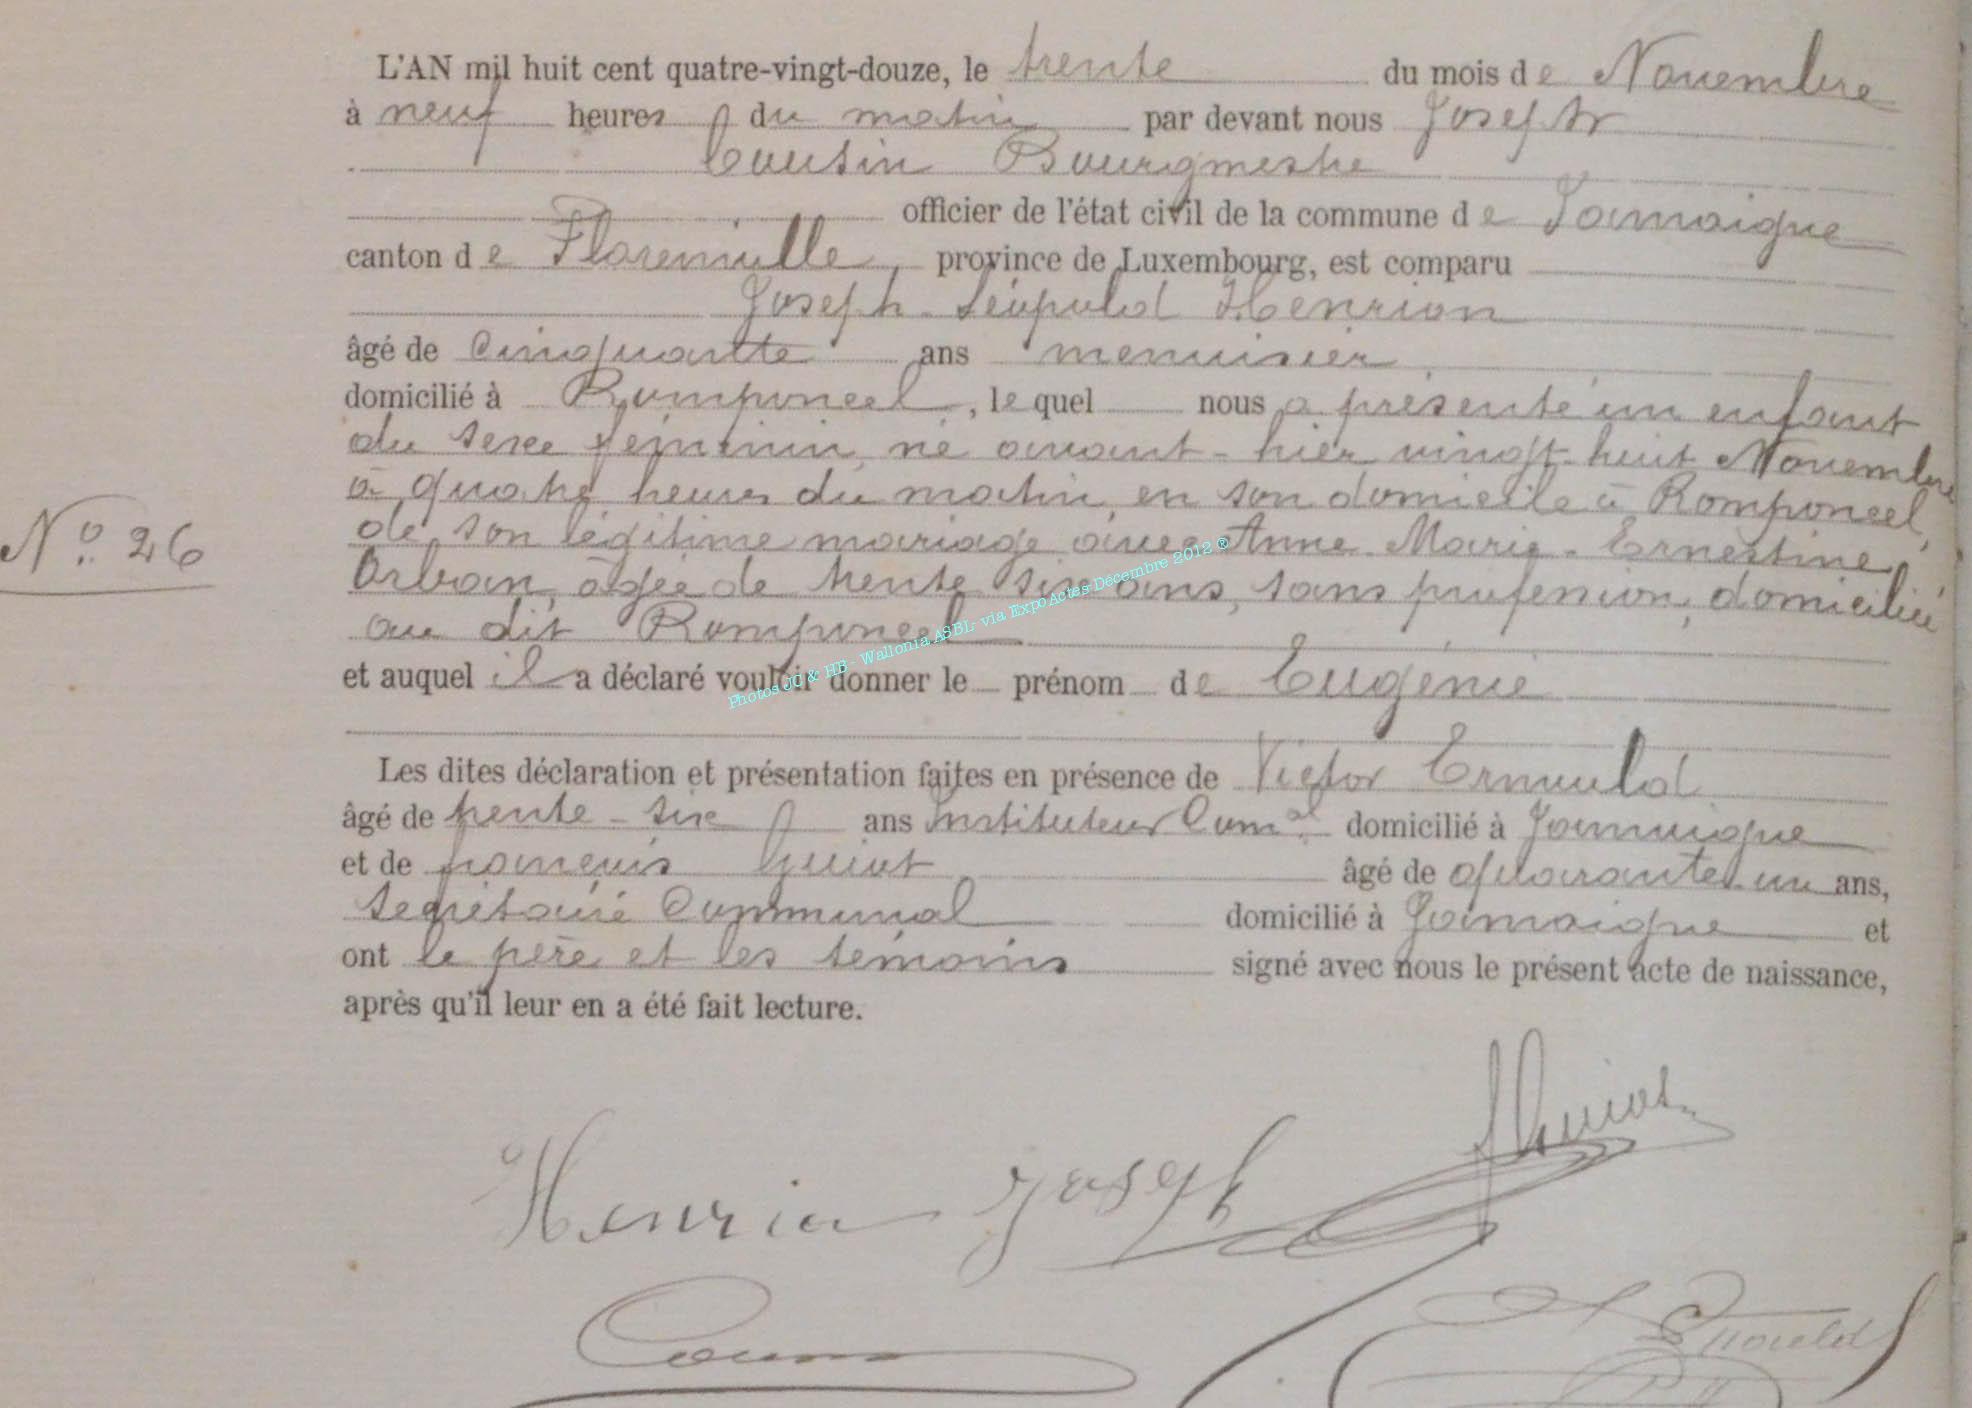 L'AN mil huit cent quatre-vingt-douze, le trente du mois de Novembre
à neuf heures du matin par devant nous Joseph
Cousin Bourgmestre
officier de l'état civil de la commune de Jamoigne
canton de Florenville, province de Luxembourg, est comparu
Joseph-Léopold Henrion
âgé de Cinquante ans menuisier
domicilié à Romponcel, le quel nous a présenté un enfant
du sexe féminin, né avant-hier vingt-huit Novembre
à quatre heures du matin, en son domicile à Romponcel,
de son légitime mariage avec Anne-Marie-Ernestine
Orban, âgée de trente six ans, sans profession, domiciliée
au dit Romponcel
et auquel il a déclaré vouloir donner le prénom de Eugénie
Les dites déclaration et présentation faites en présence de Victor
âgé de trente-six ans Instituteur Comal domicilié à Jamoigne
et de françois Guiot âgé de quarante-un ans,
Secrétaire Communal domicilié à Jamoigne et
ont le père et les témoins signé avec nous le présent acte de naissance,
après qu'il leur en a été fait lecture.
No. 26
Photos JC & HB - Wallonia ASBL- via ExpoActes Décembre 2012 ®
Henrion Joseph